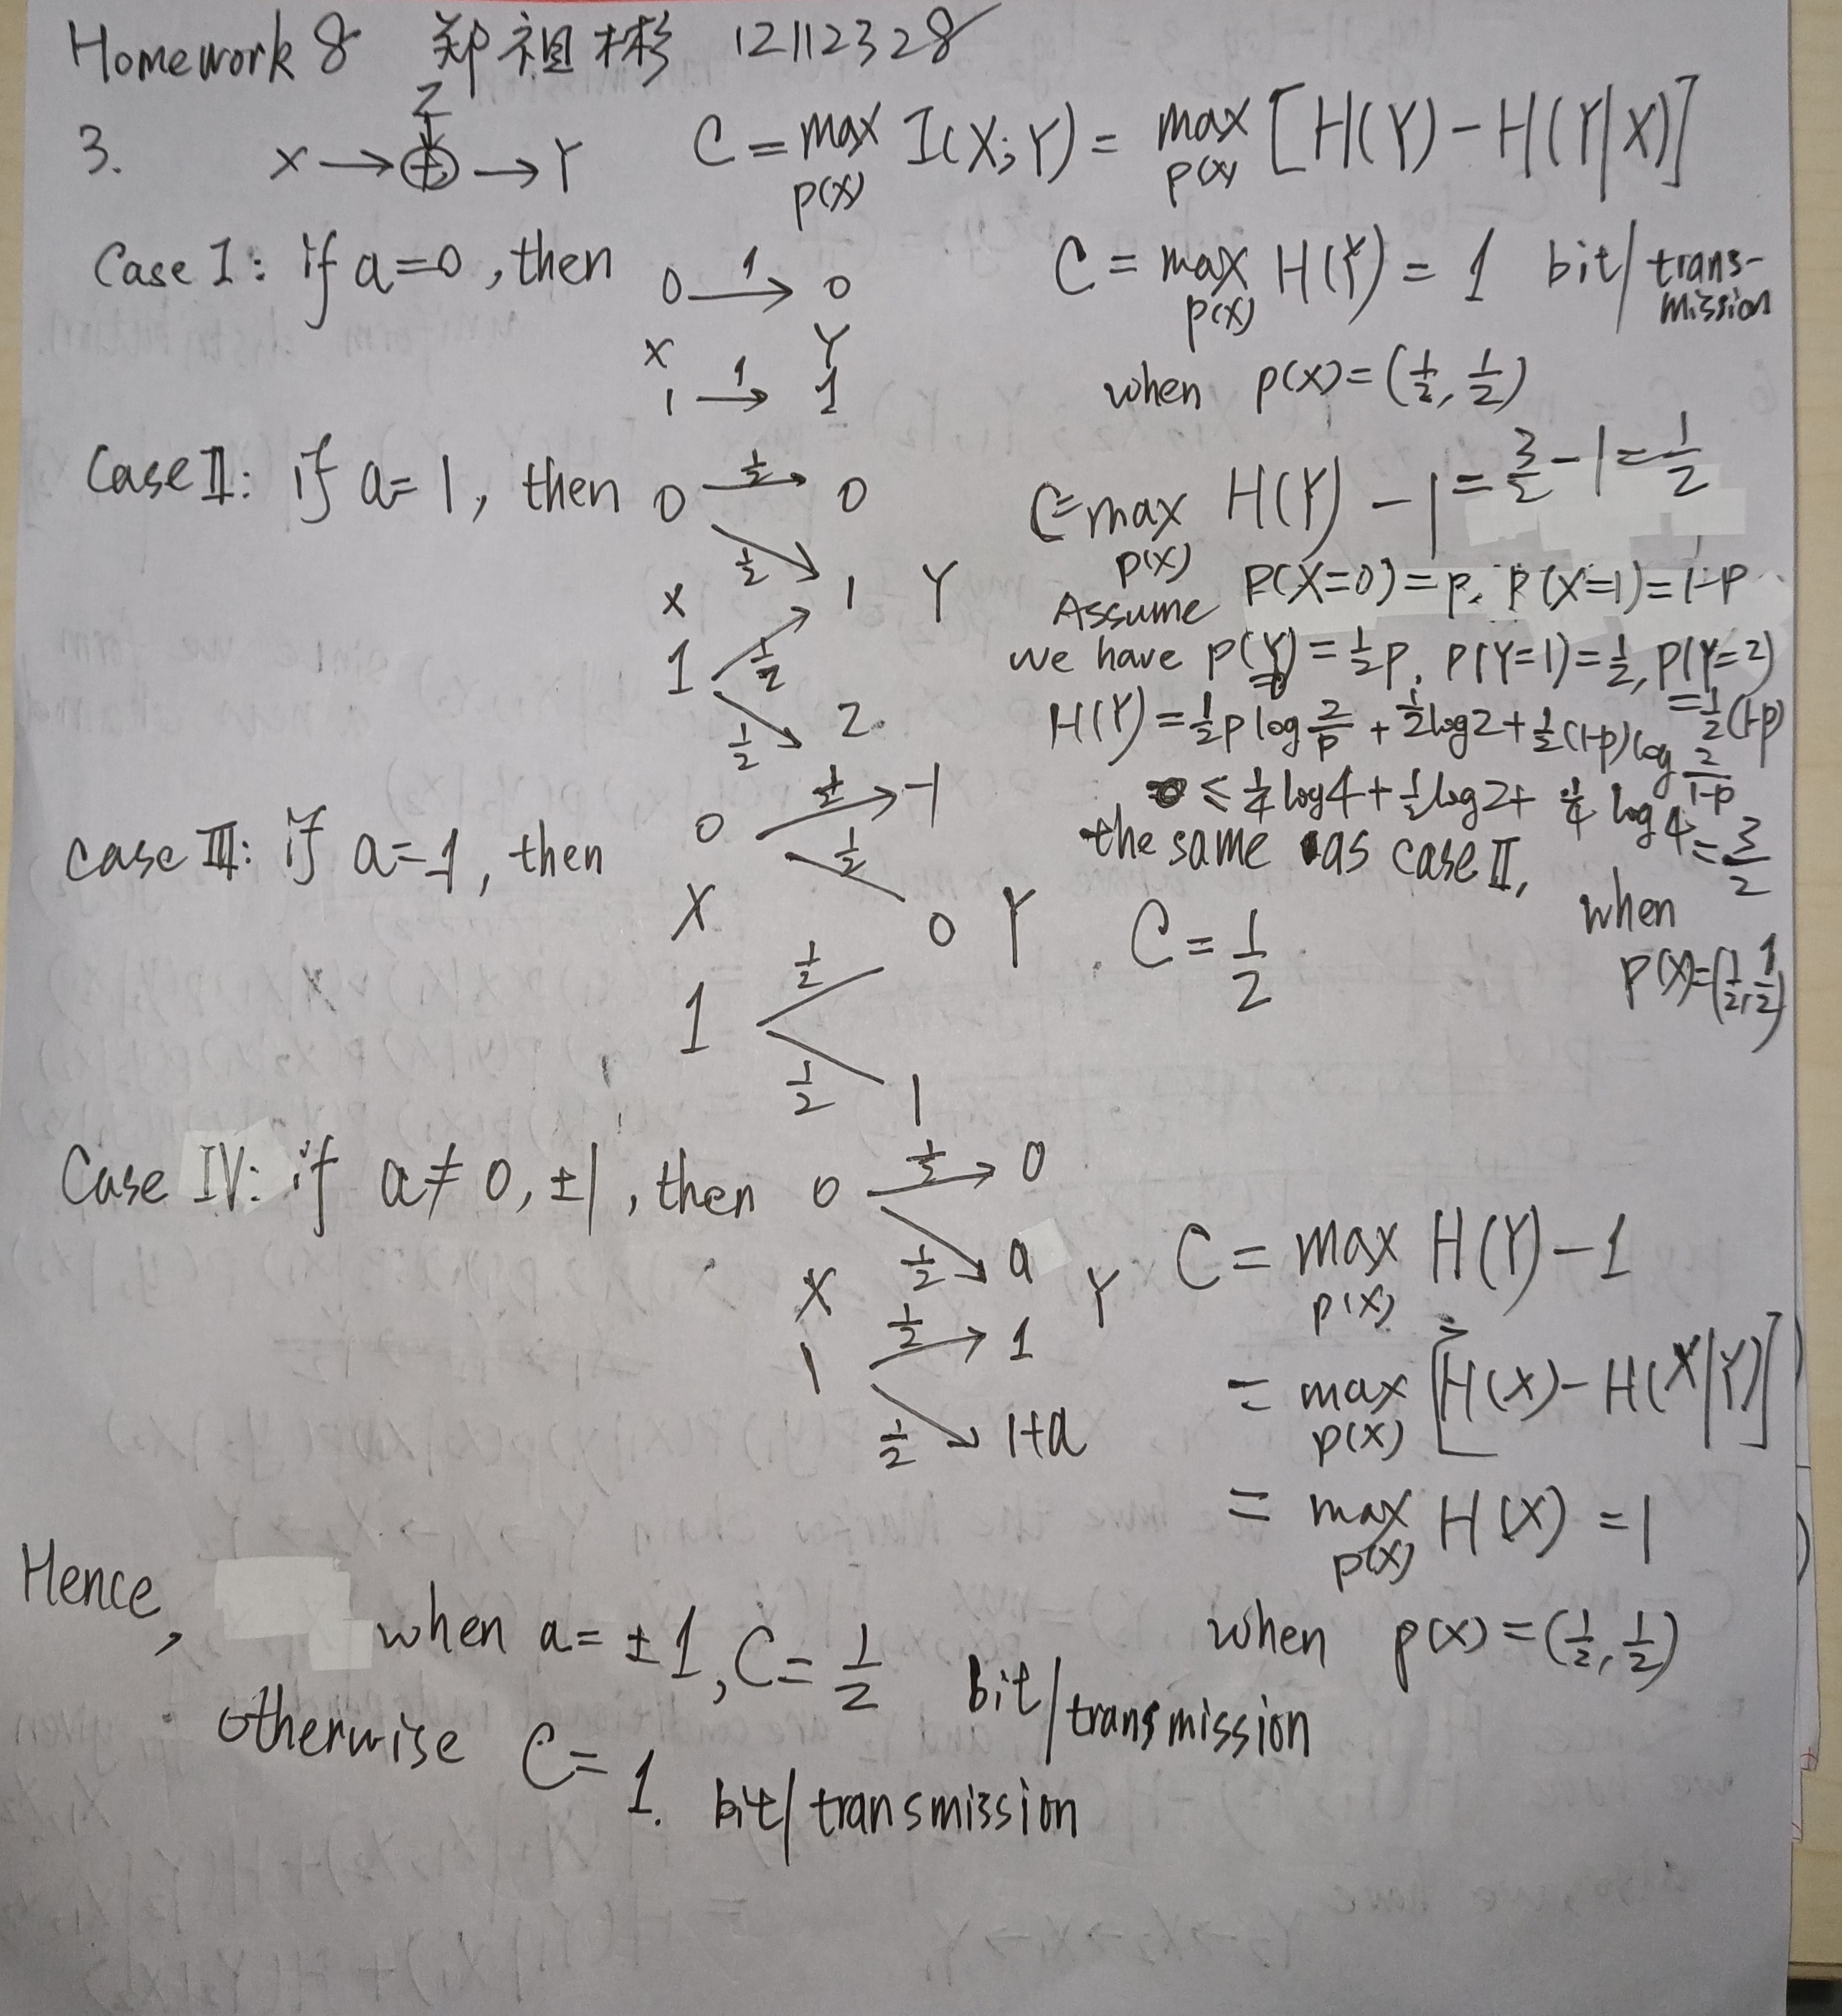 Homework 8 郑祖彬 12112328
3. X → ⊕ → Y
Z
C = max I(X;Y) = max [H(Y) - H(Y|X)]
p(x) p(x)
Case I: if a=0, then
0 →(1) 0
X Y
1 →(1) 1
C = max H(Y) = 1 bit/trans-
p(x) mission
when p(x)=(1/2, 1/2)
Case II: if a=1, then
0 1/2 0
1/2 1 Y
X
1 1/2
1/2 2
C=max H(Y) - 1 = 3/2 - 1 = 1/2
p(x)
Assume P(X=0)=p, P(X=1)=1-p
we have p(Y=0)=1/2 p, P(Y=1)=1/2, P(Y=2)
=1/2(1-p)
H(Y)=1/2 p log 2/p + 1/2 log2 + 1/2 (1-p) log 2/(1-p)
≤ 1/4 log4 + 1/2 log2 + 1/4 log4 = 3/2
when
P(X)=(1/2, 1/2)
Case III: if a=-1, then
0 1/2 -1
1/2
X 0 Y
1/2
1
1/2 1
the same as case II,
C = 1/2
Case IV: if a≠0, ±1, then
0 1/2 0
1/2 a
X Y
1/2 1
1
1/2 1+a
C = max H(Y) - 1
p(x)
= max [H(X) - H(X|Y)]
p(x)
= max H(X) = 1
p(x)
when p(x)=(1/2, 1/2)
Hence, when a=±1, C=1/2 bit/transmission
otherwise C=1. bit/transmission